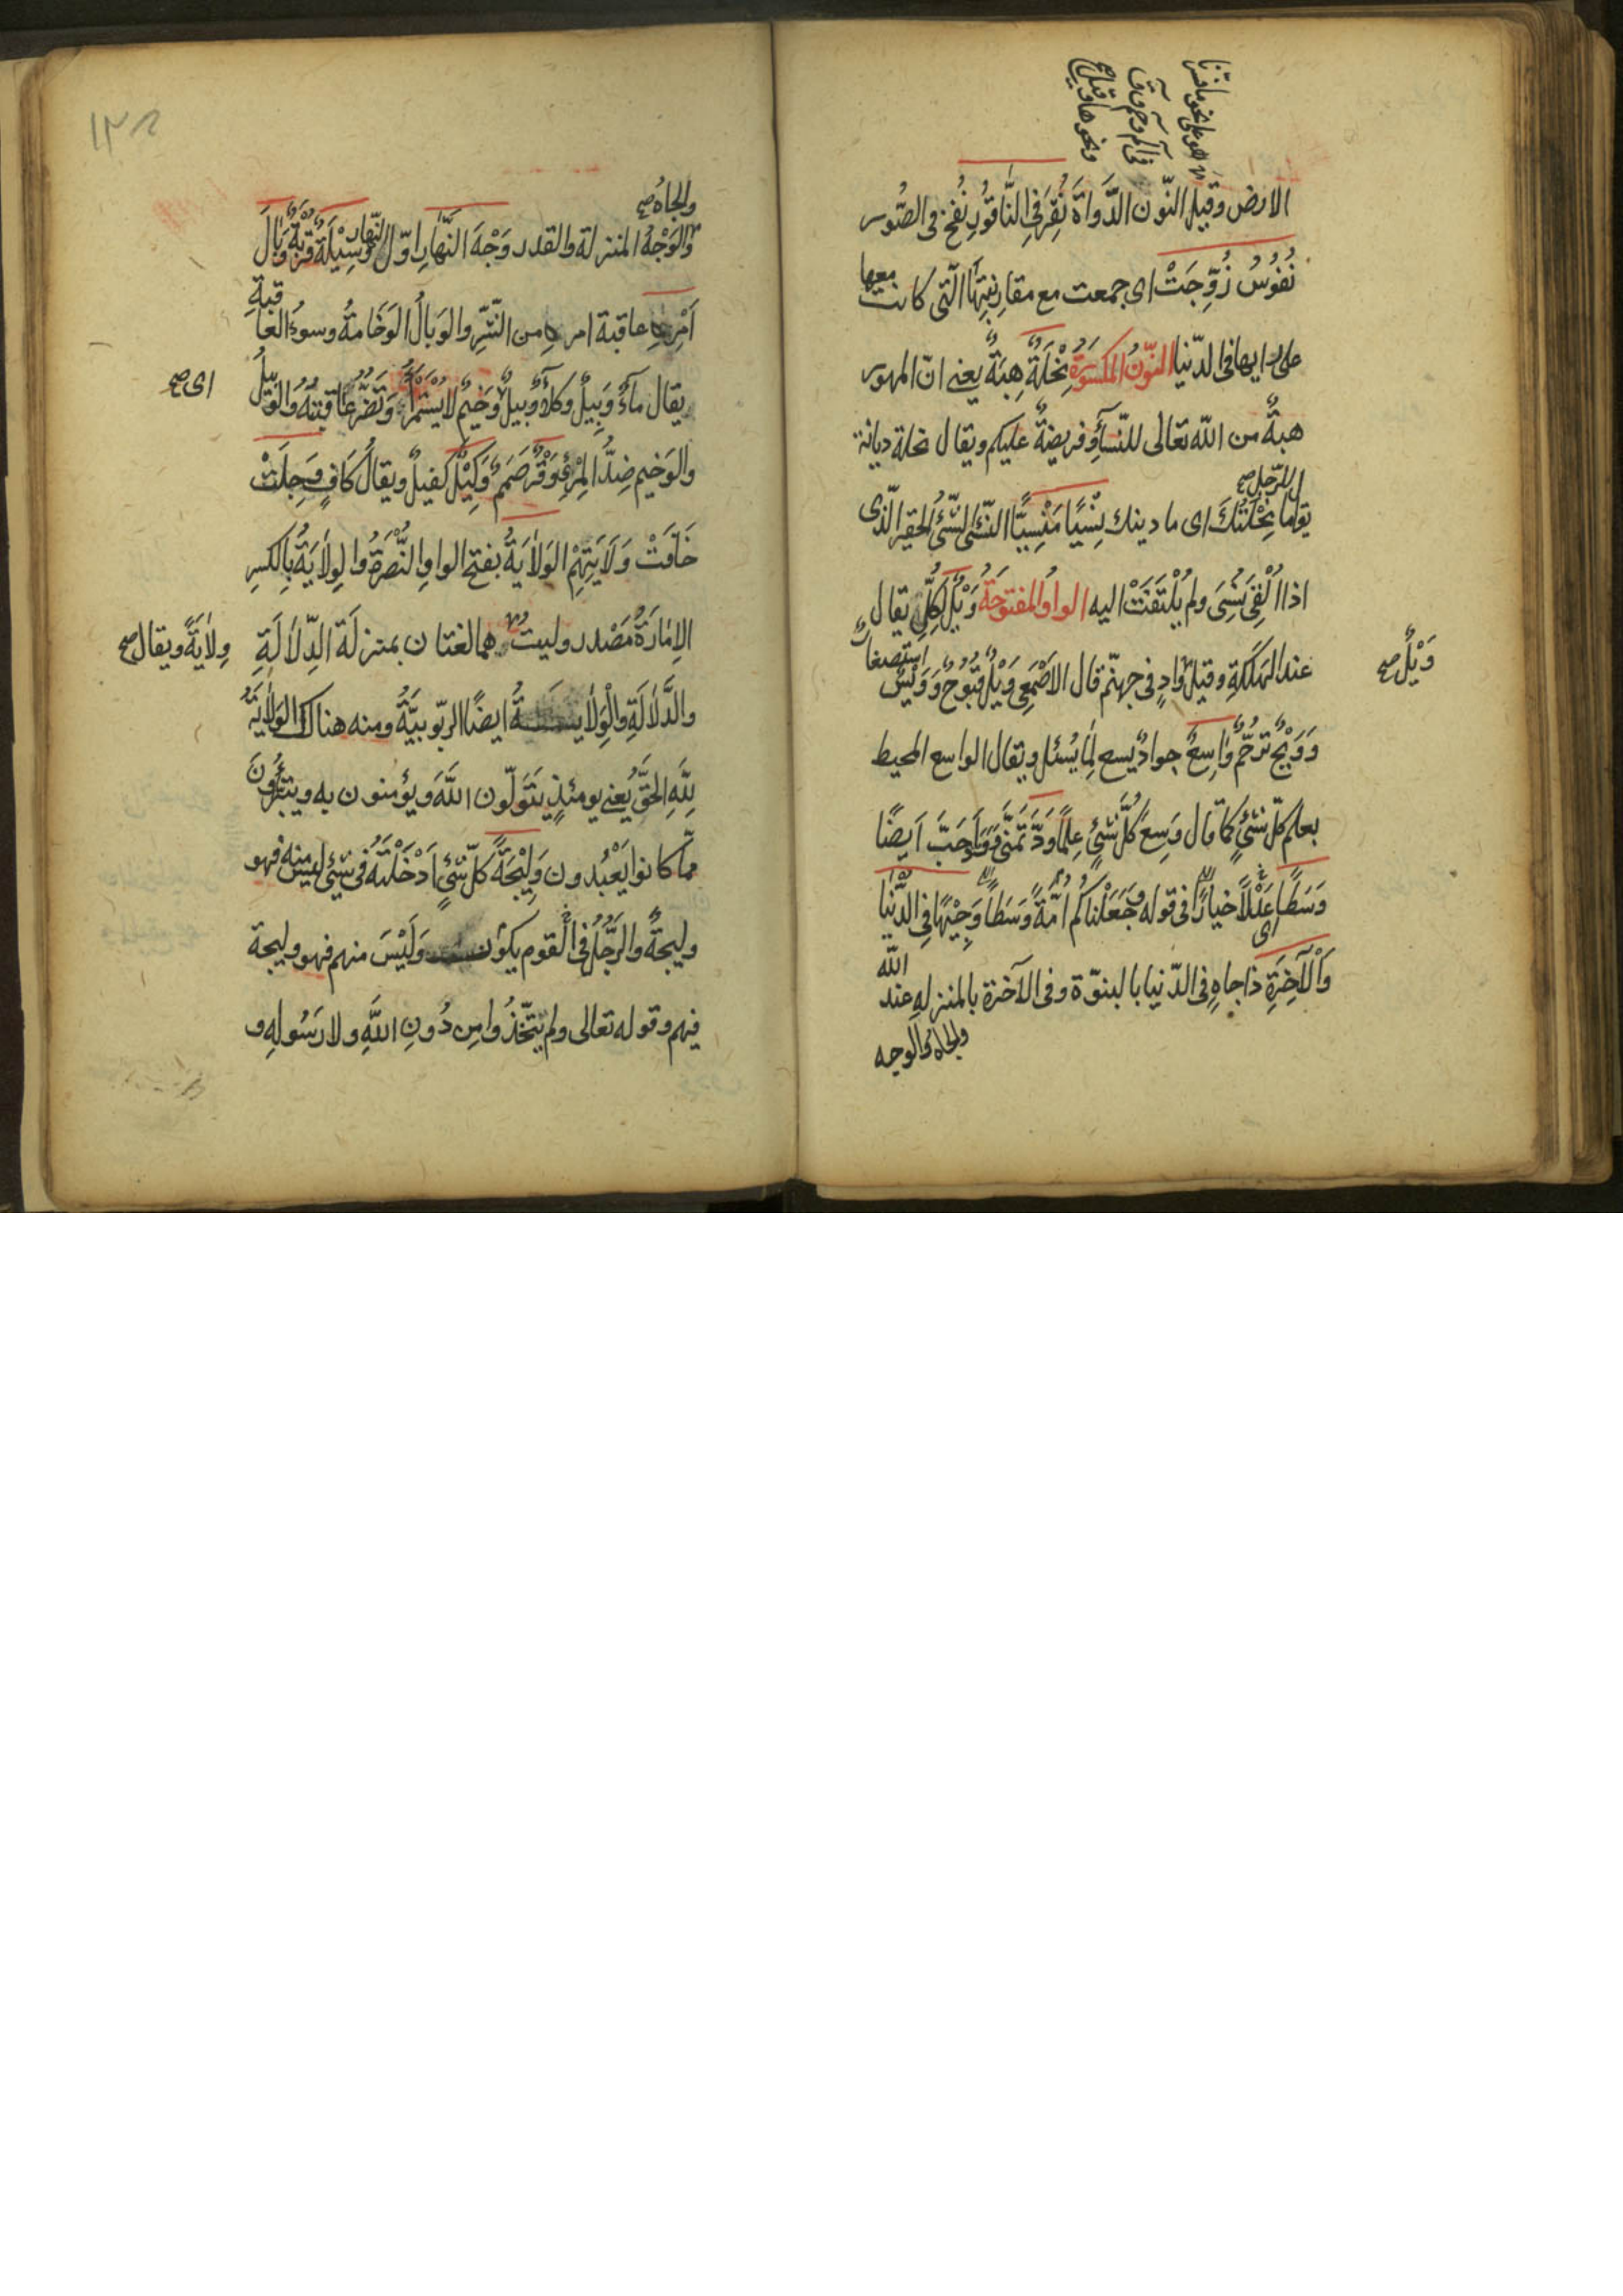 هو على نحو ما فسّرنا
في الٓم وحٓم وقٓ
ونحوها وقيل ح
الارض وقيل النّون الدَّواةَ نُقِرَ فِى النَّاقُورِ نُفِخَ فى الصُّور
نُفُوسُ زُوِّجَتْ اى جمعت مع مقارنيتِهَا الّتى كانت معها
على رايها فى الدّنيا النّونُ المكسُورَةُ نِحْلَةً هِبَةً يعنى انّ المهور
هبةٌ من اللّه تعالى للنّسآءِ وفريضةٌ عليكم ويقال نحلة ديانة
يقال للرّجل صح ما نِحْلَتُكَ اى ما دينك نِسْيًا مَنْسِيًّا النّسْىُ الشّىْءُ الحقير الّذى
اذا اُلْقِىَ نُسِىَ ولم يُلْتَفَتْ اليه الواوُ المفتوحَةُ وَيْلٌ لِكُلِّ يقال
وَيْلٌ صح
عند الهَلَكَةِ وقيل وَادٍ فى جهنّم قال الاَصْمَعِى وَيْلٌ قُبُوحٌ وَوَيْسٌ استصغارٌ
وَوَيْحٌ ترحّمٌ وٰاسِعٌ جوادٌ يسع لِمَا يُسْئل ويقال الواسع المحيط
بعلم كلّ شئٍ كما قال وَسِعَ كُلَّ شَئٍ عِلْمًا وَدَّ تَمَنَّى وَوَدَّ اَحَبَّ اَيضًا
وَسَطًا عَدْلًا خيارًا فى قوله وَجَعَلْنَاكُمْ اُمَّةً وَسَطًا اى وَجِيْهًا فِى الدُّنْيَا
وَاْلآخِرَةِ ذا جاهٍ فى الدّنيا بالنبوّة وفى الآخرة بالمنزله عند اللّه
والجاهُ والوجه
والجاهُ صح
وَالوَجْهُ المنزلة والقدر وَجْهَ النَّهَارِ اوّل النّهار وَسِيْلَةٌ قُرْبَةٌ وَبَالَ
اَمْرِهِ عاقبة امره من الشّرِّ والوَبالُ الوَخَامةُ وسوءُ العاقبةِ
يقال مآءٌ وَبِيلٌ وكلأٌ وبيلٌ وَخِيمٌ لا يُسْتَمْرَأُ وَتَضُرُّ عَاقِبَتُهُ وَالوَبِيلُ
اى صح
والوَخيم ضِدُّ المَرِئِ وَقْرٌ صَمَمٌ وَكِيْلٌ كفيلٌ ويقالُ كَافٍ وَجِلَتْ
خَافَتْ وَلَايَتِهِمْ الوَلَايَةُ بفتح الواوِ النُّصْرَةُ والوِلاٰيَةُ بِالكسرِ
الاِمَارَةُ مَصْدر وليتُ هما لغتان بمنزلَة الدِّلاٰلَةِ
وِلاٰيَةً ويقال صح
والدَّلاٰلَةِ والْوِلاٰيـــةُ ايضًا الرّبوبيَّةُ ومنه هناك الوَلاٰيَةُ
لِلّٰهِ الحَقَّ يَعنى يومئِذٍ يَتَوَلَّون اللّٰهَ ويؤمنون به ويتبرَّءُونَ
ممّا كانوا يَعْبُدون وَلِيْجَةً كلّ شئٍ اَدْخَلْتَهُ فى شئٍ ليس منه فهو
وليجةٌ والرَّجُلُ فى القوم يكون وَلَيْسَ منهم فهو وليجة
فيهم وقوله تعالى ولم يَتَّخِذُوا مِن دُونِ اللّٰهِ ولا رَسُولِهِ و